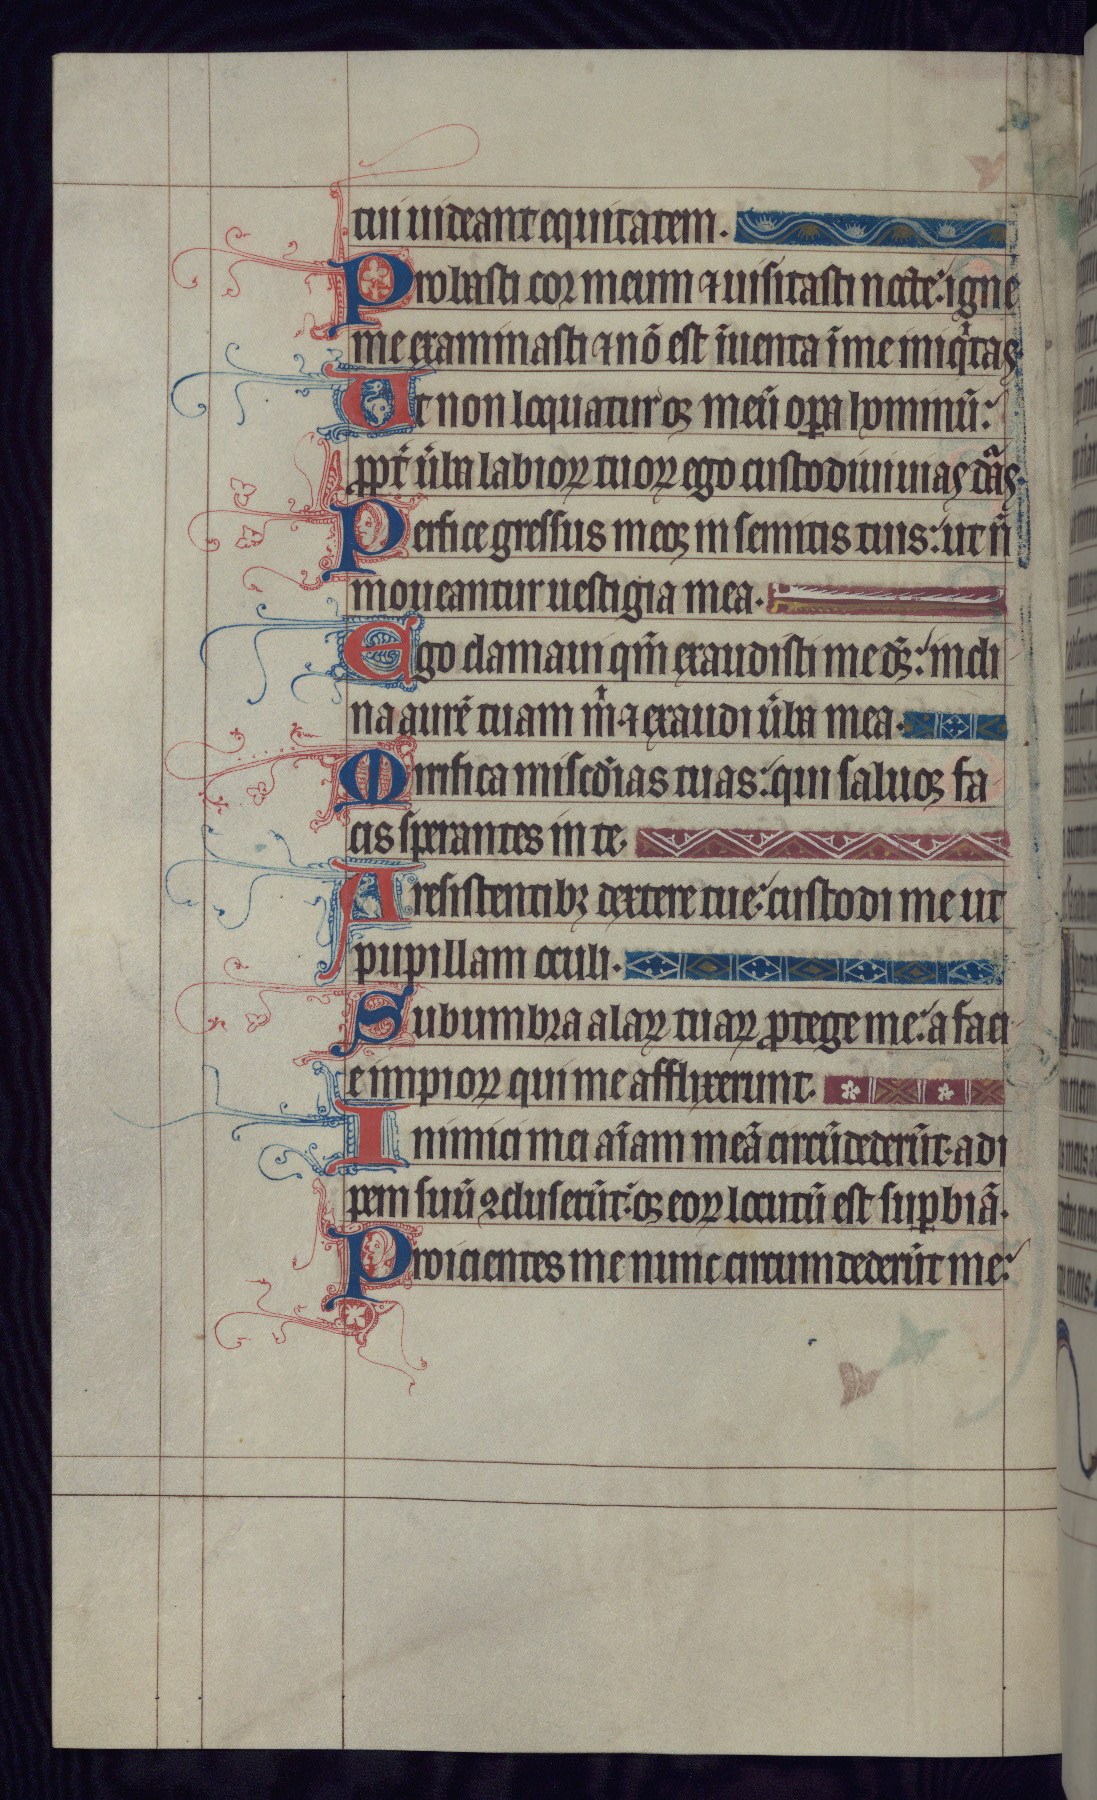 tui uideant equitatem.
Probasti cor meum ⁊ uisitasti nocte: igne
me examinasti ⁊ nō est īuenta ī me iniqͥtas
Ut non loquatur os meū opa hominū:
ꝓpt̄ ūba labioꝝ tuoꝝ ego custodiui uias duͣs
Perfice gressus meos in semitis tuis: ut n̄
moueantur uestigia mea.
Ego clamaui qm̄ exaudisti me ds̄: incli
na aurē tuam mͥ ⁊ exaudi ūba mea.
Mirifica misc̄dias tuas: qui saluos fa
cis sperantes in te.
A resistentibꝫ dextere tue: custodi me ut
pupillam oculi.
Sub umbra alaꝝ tuaꝝ ꝓtege me: a faci
e impioꝝ qui me afflixerunt.
Inimici mei aīam meā circūdederūt: adi
pem suū ꝯcluserūt: os eoꝝ locutū est suꝑbiā.
Proicientes me nunc circumdederūt me: